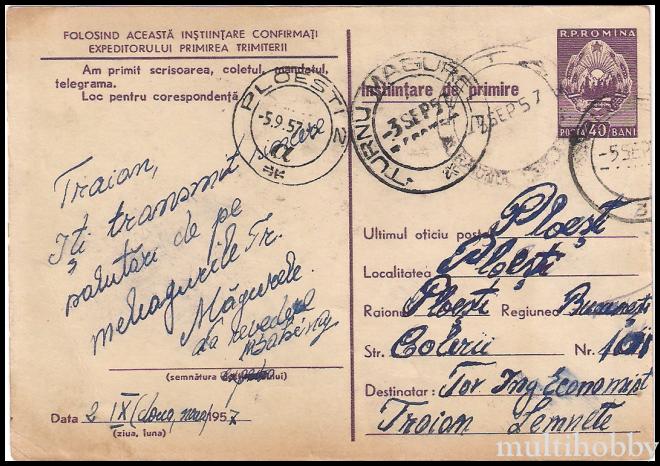 FOLOSIND ACEASTĂ INȘTIINȚARE CONFIRMAȚI
EXPEDITORULUI PRIMIREA TRIMITERII
Am primit scrisoarea, coletul, mandatul,
telegrama.
Loc pentru corespondență
PLOEȘTI 2
-5.9.57
Traian,
Iți transmit
salutări de pe
meleagurile Tr.
Măgurele.
La revedere
(semnătura
Data 2 IX 1957
(ziua, luna)
R.P.ROMINA
POSTA 40 BANI
TURNU MAGURELE
-3 SEP 57
SEP 57
-5 SEP
Inștiințare de primire
Ultimul oficiu poștal Ploești
Localitatea Ploești
Raionul Ploești Regiunea București
Str. Colerii Nr.
Destinatar: Tov. Ing. Economist
Traian Lemnete
multihobby